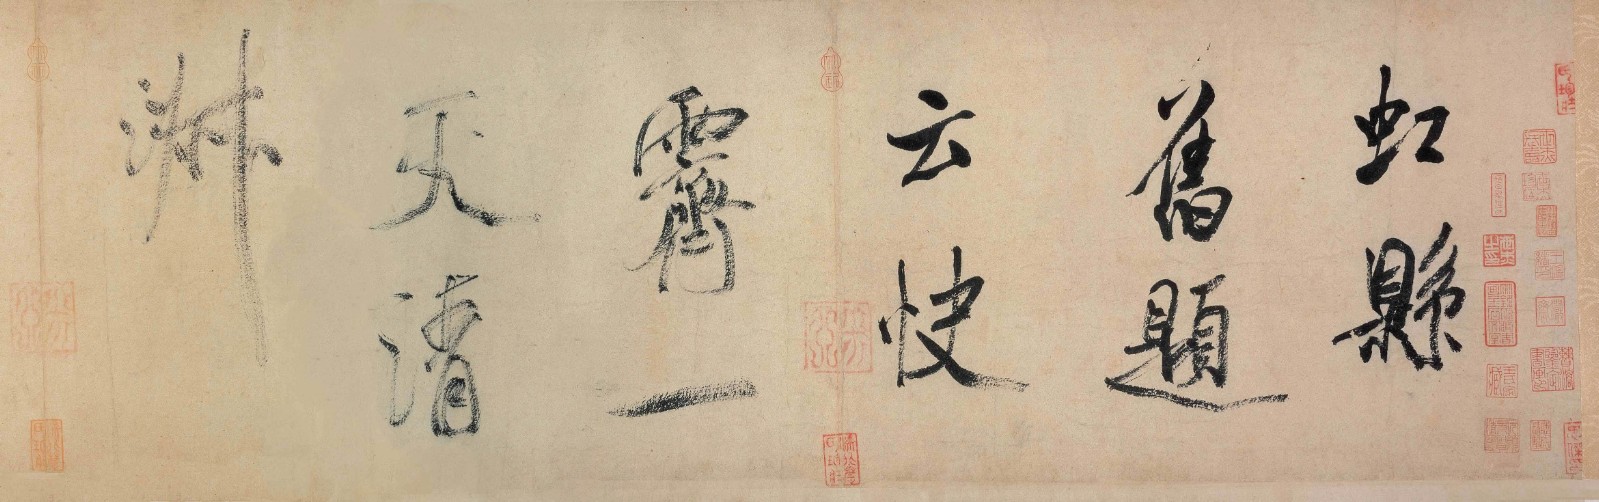 虹縣
舊題
云快
霽一
天清
淑